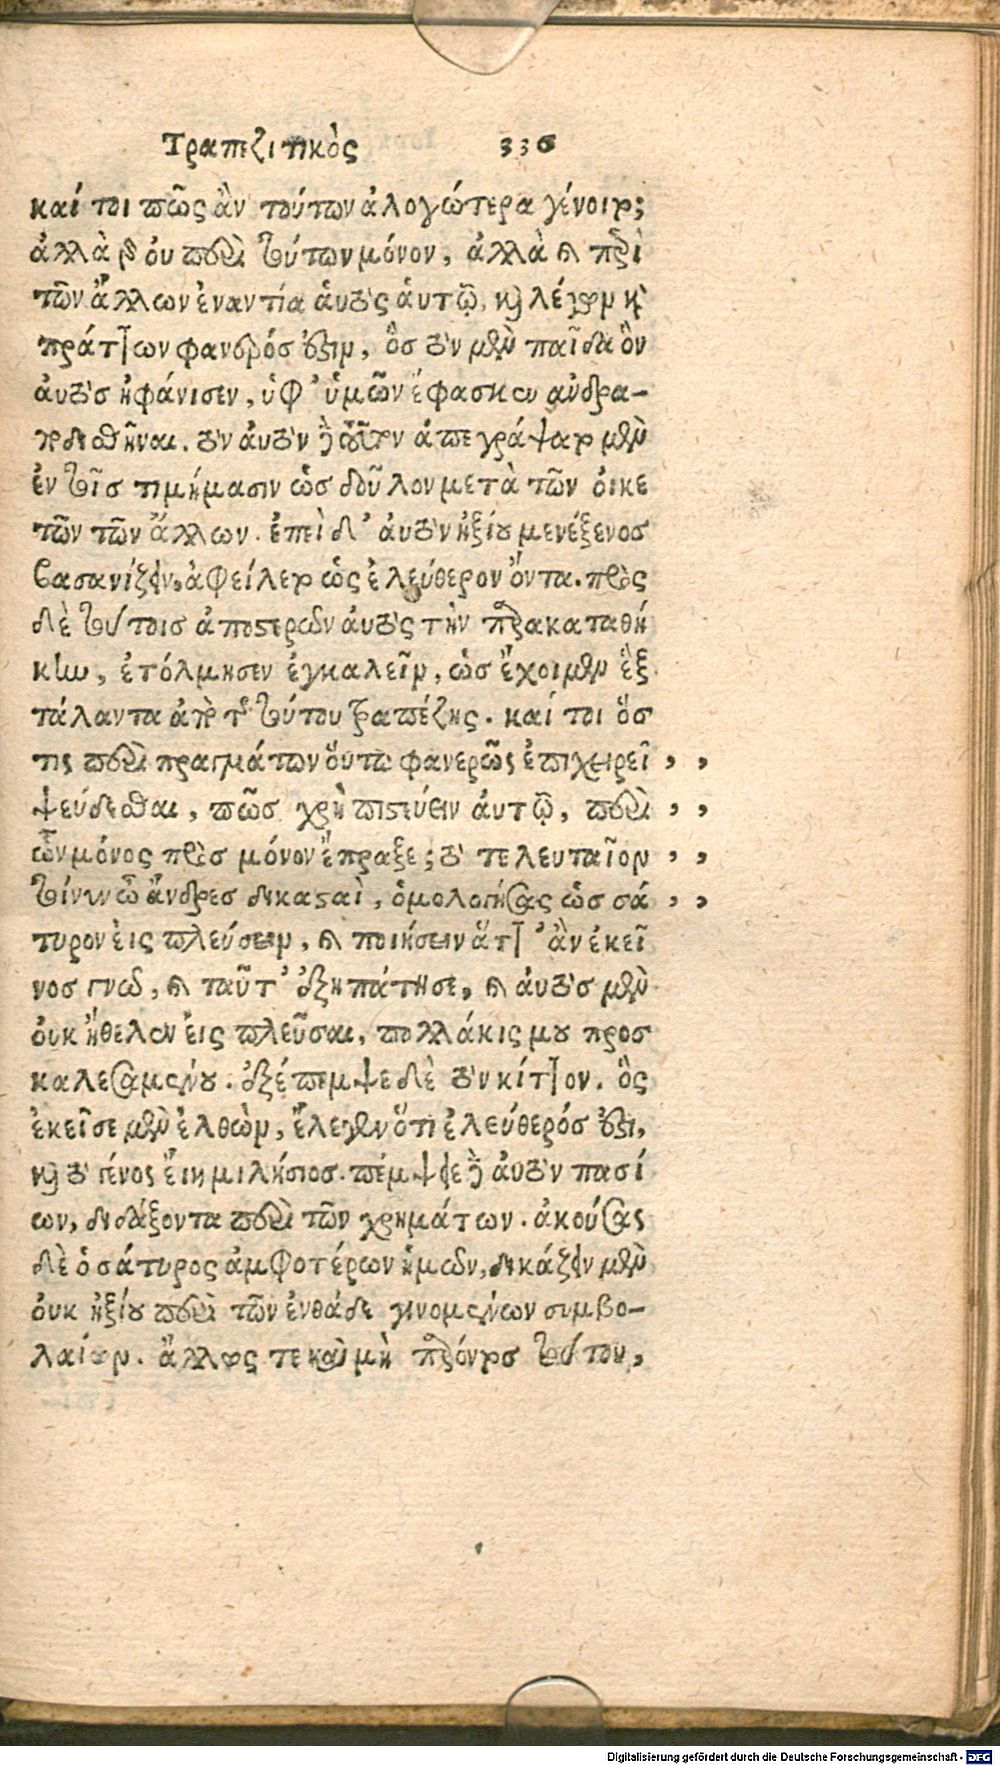 Τραπεζιτικὸς 336
καί τοι πῶς ἂν τούτων ἀλογώτερα γένοιτο;
ἀλλὰ γὰρ οὐ περὶ τούτων μόνον, ἀλλὰ καὶ περὶ
τῶν ἄλλων ἐναντία αὐτὸς αὑτῷ, καὶ λέγων καὶ
πράττων φανερός ἐστιν, ὃσ τὸν μὲν παῖδα ὃν
αὐτὸσ ἠφάνισεν, ὑφ' ὑμῶν ἔφασκεν ἀνδρα-
ποδισθῆναι. τὸν αὐτὸν δὲ τοῦτον ἀπεγράψατο μὲν
ἐν τοῖσ τιμήμασιν ὡσ δοῦλον μετὰ τῶν οἰκε
τῶν τῶν ἄλλων. ἐπεὶ δ' αὐτὸν ἠξίου μενέξενοσ
βασανίζειν, ἀφείλετο ὡς ἐλεύθερον ὄντα. πρὸς
δὲ τούτοισ ἀποστερῶν αὐτὸς τὴν παρακαταθή
κην, ἐτόλμησεν ἐγκαλεῖν, ὡσ ἔχοιμεν ἓξ
τάλαντα ἀπὸ τῆς τούτου τραπέζης. καί τοι ὅσ
τις περὶ πραγμάτων οὕτω φανερῶς ἐπιχειρεῖ , ,
ψεύδεσθαι, πῶσ χρὴ πιστεύειν αὐτῷ, περὶ , ,
ὧν μόνος πρὸσ μόνον ἔπραξε; τὸ τελευταῖον , ,
τοίνυν ὦ ἄνδρεσ δικασταὶ, ὁμολογήσας ὡσ σά , ,
τυρον εἰς πλεύσειν, καὶ ποιήσειν ἅττ' ἂν ἐκεῖ
νοσ γνῶ, καὶ ταῦτ' ἐξηπάτησε, καὶ αὐτὸσ μὲν
οὐκ ἤθελεν εἰς πλεῦσαι, πολλάκις μου προσ
καλεσαμένου. ἐξέπεμψε δὲ τὸν κίττον. ὃς
ἐκεῖσε μὲν ἐλθὼν, ἔλεγεν ὅτι ἐλεύθερόσ ἐστι,
καὶ τὸ γένος εἴη μιλήσιοσ. πέμψειε δὲ αὐτὸν πασί
ων, διδάξοντα περὶ τῶν χρημάτων. ἀκούσας
δὲ ὁ σάτυρος ἀμφοτέρων ἡμῶν, δικάζειν μὲν
οὐκ ἠξίου περὶ τῶν ἐνθάδε γινομένων συμβο-
λαίων. ἄλλως τε καὶ μὴ παρόντοσ τούτου,
Digitalisierung gefördert durch die Deutsche Forschungsgemeinschaft - DFG